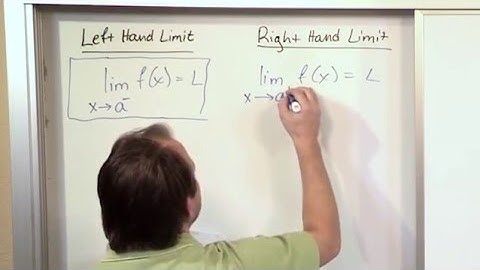 Left Hand Limit
lim f(x) = L
x→a⁻
Right Hand Limit
lim f(x) = L
x→a